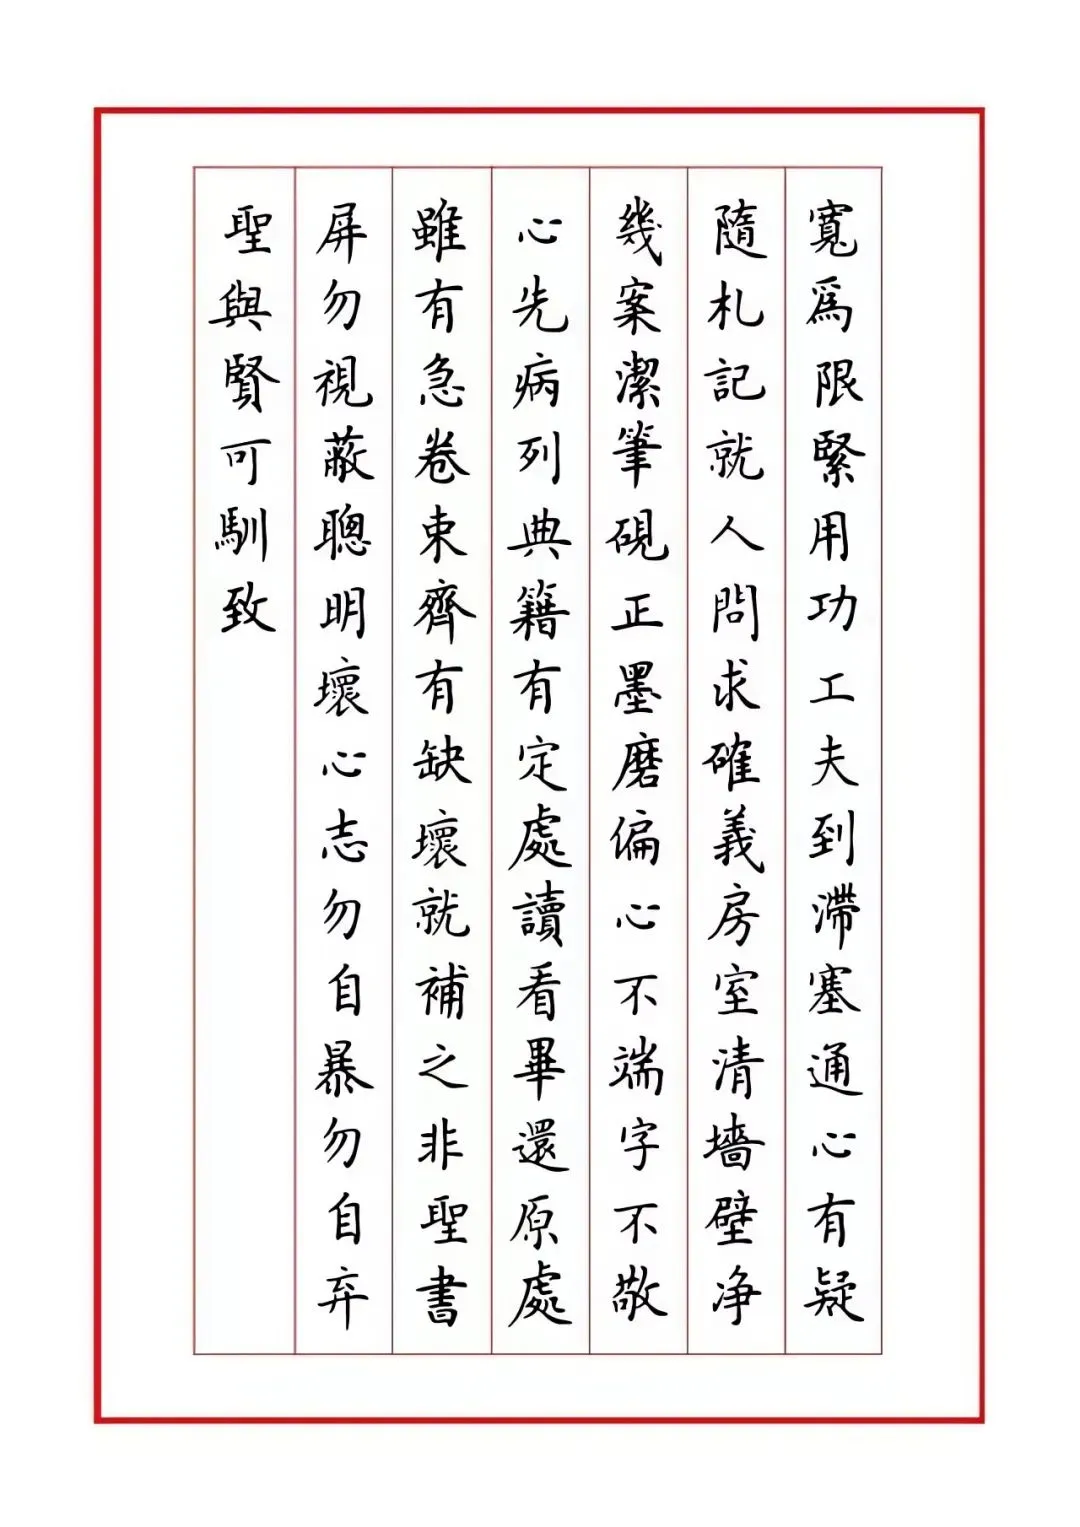 寬為限緊用功工夫到滯塞通心有疑
隨札記就人問求確義房室清墻壁净
幾案潔筆硯正墨磨偏心不端字不敬
心先病列典籍有定處讀看畢還原處
雖有急卷束齊有缺壞就補之非聖書
屏勿視蔽聰明壞心志勿自暴勿自弃
聖與賢可馴致